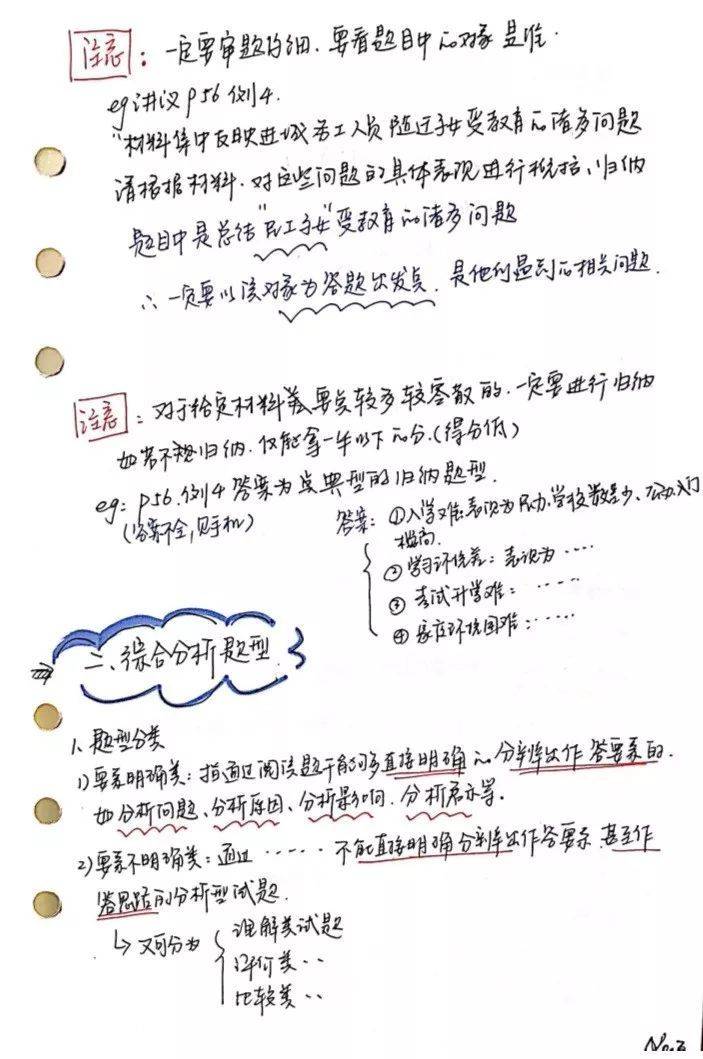 注意：一定要审题仔细．要看题目中的对象是谁．
eg 讲议 P56 例4.
"材料集中反映进城务工人员随迁子女受教育的诸多问题
请根据材料．对这些问题的具体表现进行概括、归纳
题目中是总结"民工子女"受教育的诸多问题
∴ 一定要以该对象为答题出发点．是他们遇到的相关问题．
注意：对于给定材料类要点较多较零散的．一定要进行归纳
如若不想归纳．仅能拿一半以下的分．(得分低)
eg: P56. 例4 答案为点典型的归纳题型．
(答案不全,见手机)
答案: ①入学难:表现为民办学校数量少、公办入门
槛高．
② 学习环境差：表现为 ····
③ 考试升学难： ·····
④ 家庭环境困难：·····
二、综合分析题型
1、题型分类
1) 要素明确类：指通过阅读题干能够直接明确的分辨出作答要素的．
如分析问题、分析原因、分析影响．分析启示等．
2) 要素不明确类：通过 ····· 不能直接明确分辨出作答要素．甚至作
答思路的分析型试题．
↳ 又可分为
理解类试题
评价类··
比较类··